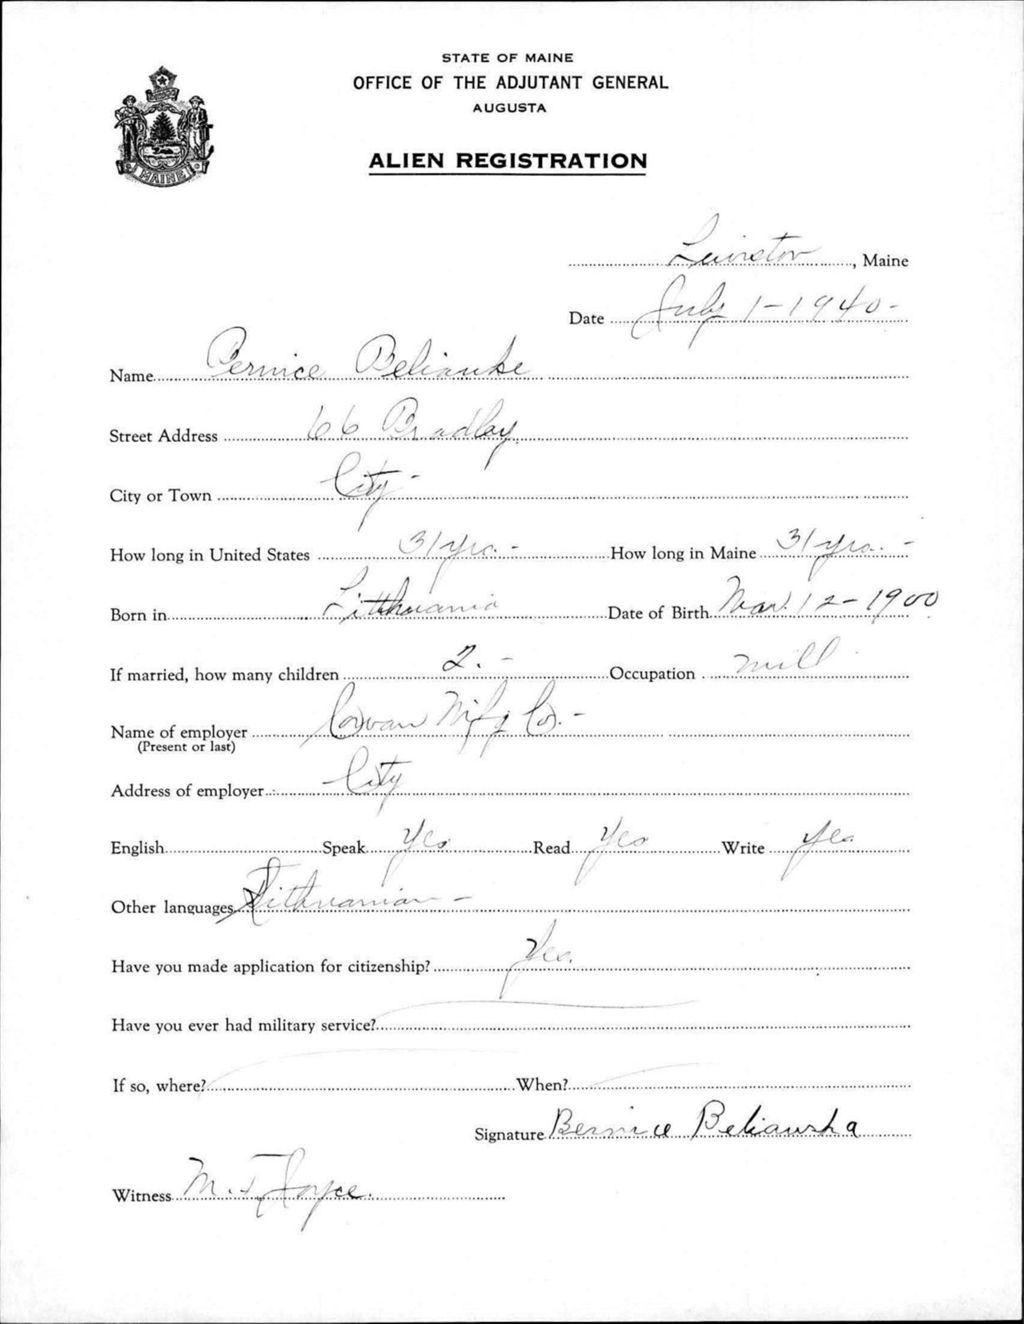 STATE OF MAINE
OFFICE OF THE ADJUTANT GENERAL
AUGUSTA
MAINE
ALIEN REGISTRATION
Lewiston, Maine
Date July 1-1940-
Name Bernice Belianske
Street Address 66 Bradley
City or Town City-
How long in United States 31 yrs. - How long in Maine 31 yrs. -
Born in Litthuania Date of Birth Mar. 12-1900
If married, how many children 2. - Occupation mill
Name of employer Cowan Mfg Co. -
(Present or last)
Address of employer City
English Speak Yes Read Yes Write Yes
Other languages Lithuanian -
Have you made application for citizenship? Yes.
Have you ever had military service?
If so, where? When?
Signature Bernice Beliawska
Witness M. T. Joyce.